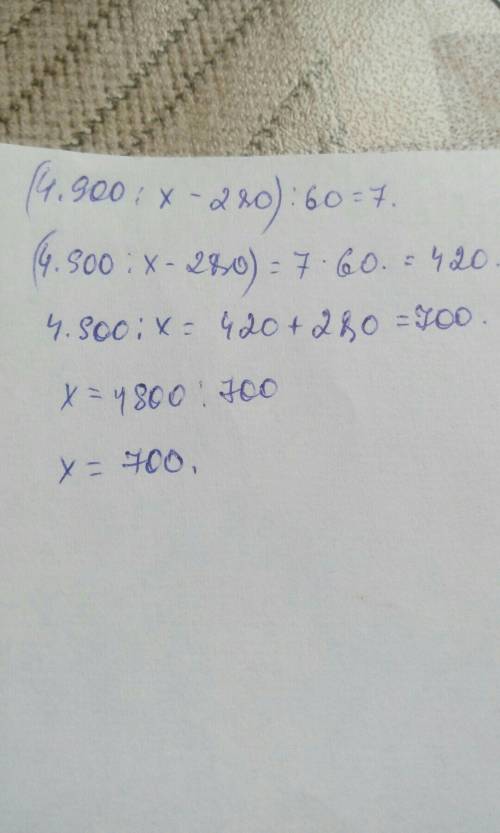 (4.900 : x - 280) : 60 = 7.
(4.900 : x - 280) = 7 · 60. = 420.
4.900 : x = 420 + 280 = 700.
x = 4900 : 700
x = 700.